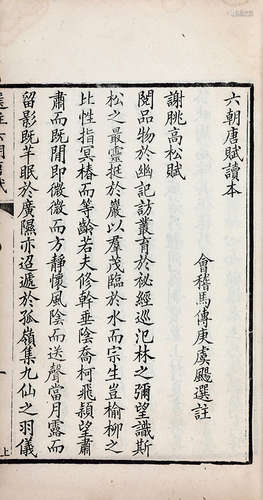 六朝唐賦讀本
會稽馬傳庚虞颺選註
謝朓高松賦
閱品物於幽記訪叢育於祕經巡汜林之彌望識斯
松之最靈挺於巖以群茂臨於水而宗生豈榆柳之
比性指冥椿而等齡若夫修幹垂陰喬柯飛穎望肅
肅而既閒即微微而方靜懷風陰而送聲當月露而
留影既芊眠於廣隰亦迢遞於孤嶺集九仙之羽儀
上